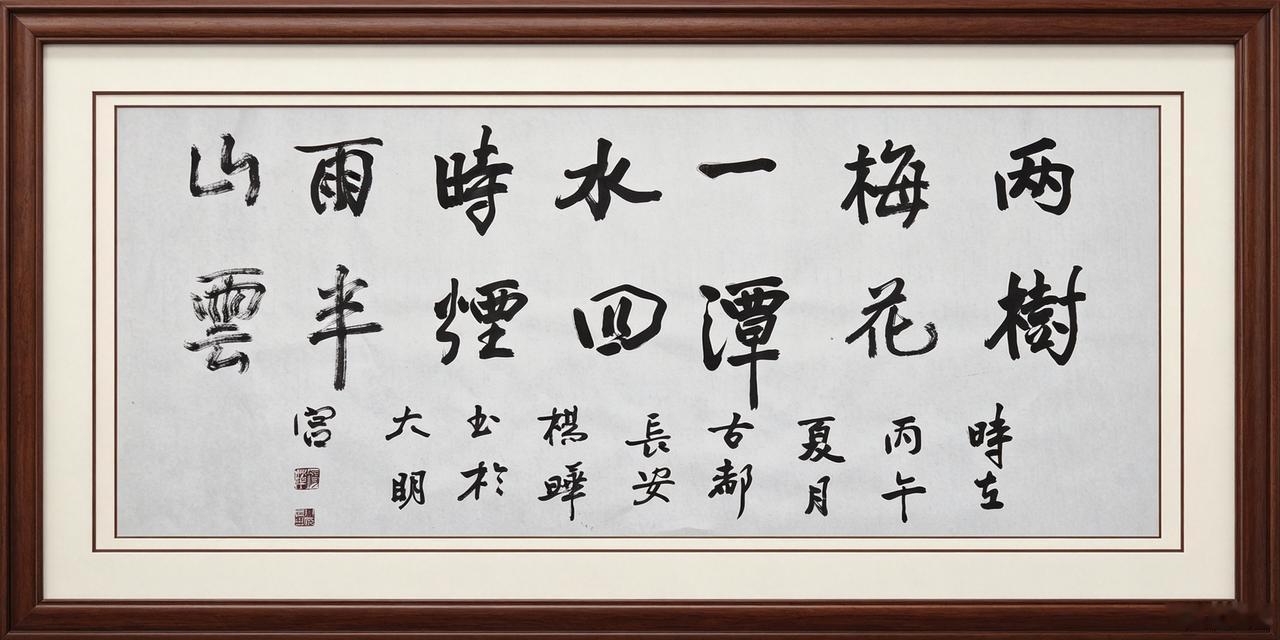 两樹
梅花
一潭
水四
時煙
雨半
山雲
時在
丙午
夏月
古都
長安
楊曄
书於
大明
宮